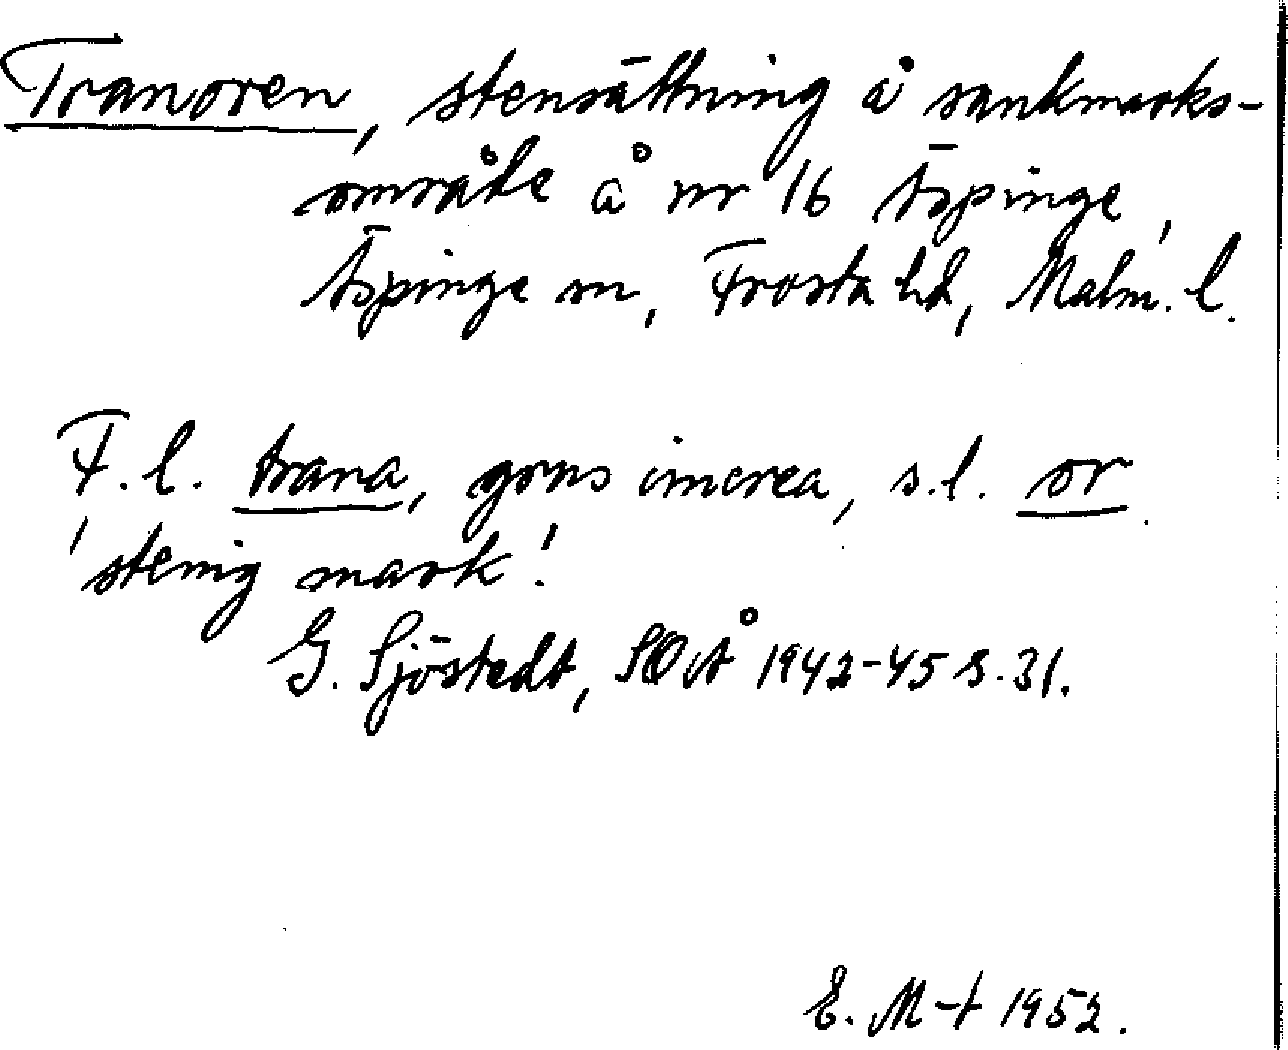 Tranoren, stensättning å sankmarks-
område å nr 16 Äspinge,
Äspinge sn, Frosta hd, Malm. l.
F. l. trana, grus cinerea, s.l. or
'stenig mark'.
G. Sjöstedt, SOÅ 1942-45 s. 31.
E. M-t 1952.